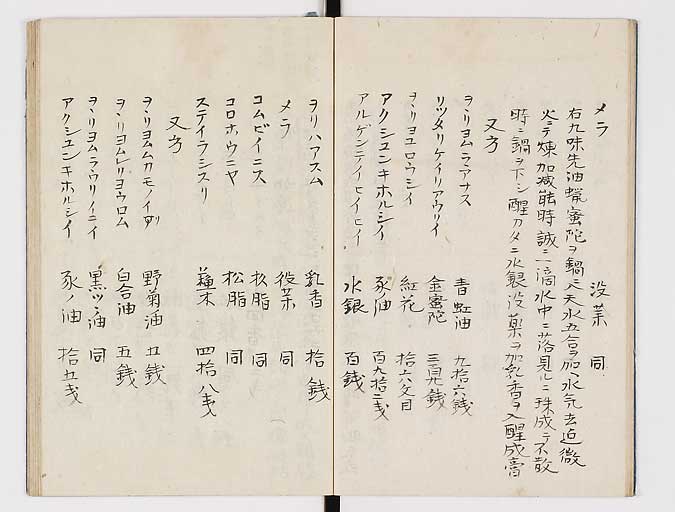 メラ 没薬 同
右九味先油蝋蜜陀ヲ鍋ニ入天水五合ヲ加水気去迄微
火ニテ煉加減能時誠ニ一滴水中ニ落見ルニ珠成テ不散
時ニ鍋ヲ下シ醒カタニ水銀没薬ヲ加乳香ヲ入醒成膏
又方
ヲヽリヨムラアナス 青虹油 九拾六銭
リツメリケイリアウリイ 金蜜陀 銭
ヲヽリヨユロウシイ 紅花 拾六文目
アクシユンキホルシイ 豕油 百九拾二戔
アルゲンテイヒイヒイ 水銀 百銭
ヲリハアスム 乳香 拾銭
メラ 没薬 同
コムビイニス 杉脂 同
コロホウニヤ 松脂 同
ステイラシスリ 四拾八戔
又方
ヲヽリヨムカモノイ 野菊油 五銭
ヲヽリヨムレリヨウロム 白合油 五銭
ヲヽリヨムラウリイニイ 黒ツヽ油 同
アクシユンキホルシイ 豕ノ油 拾五戔